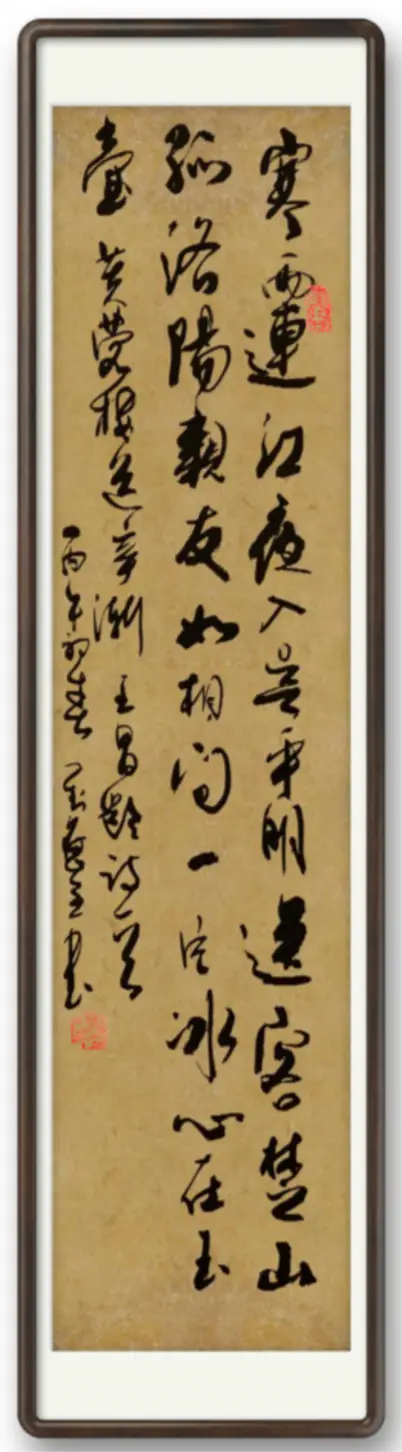 寒雨連江夜入吳平明送客楚山
孤洛陽親友如相問一片冰心在玉
壺 芙蓉樓送辛漸 王昌齡詩一首
丙午初春 書